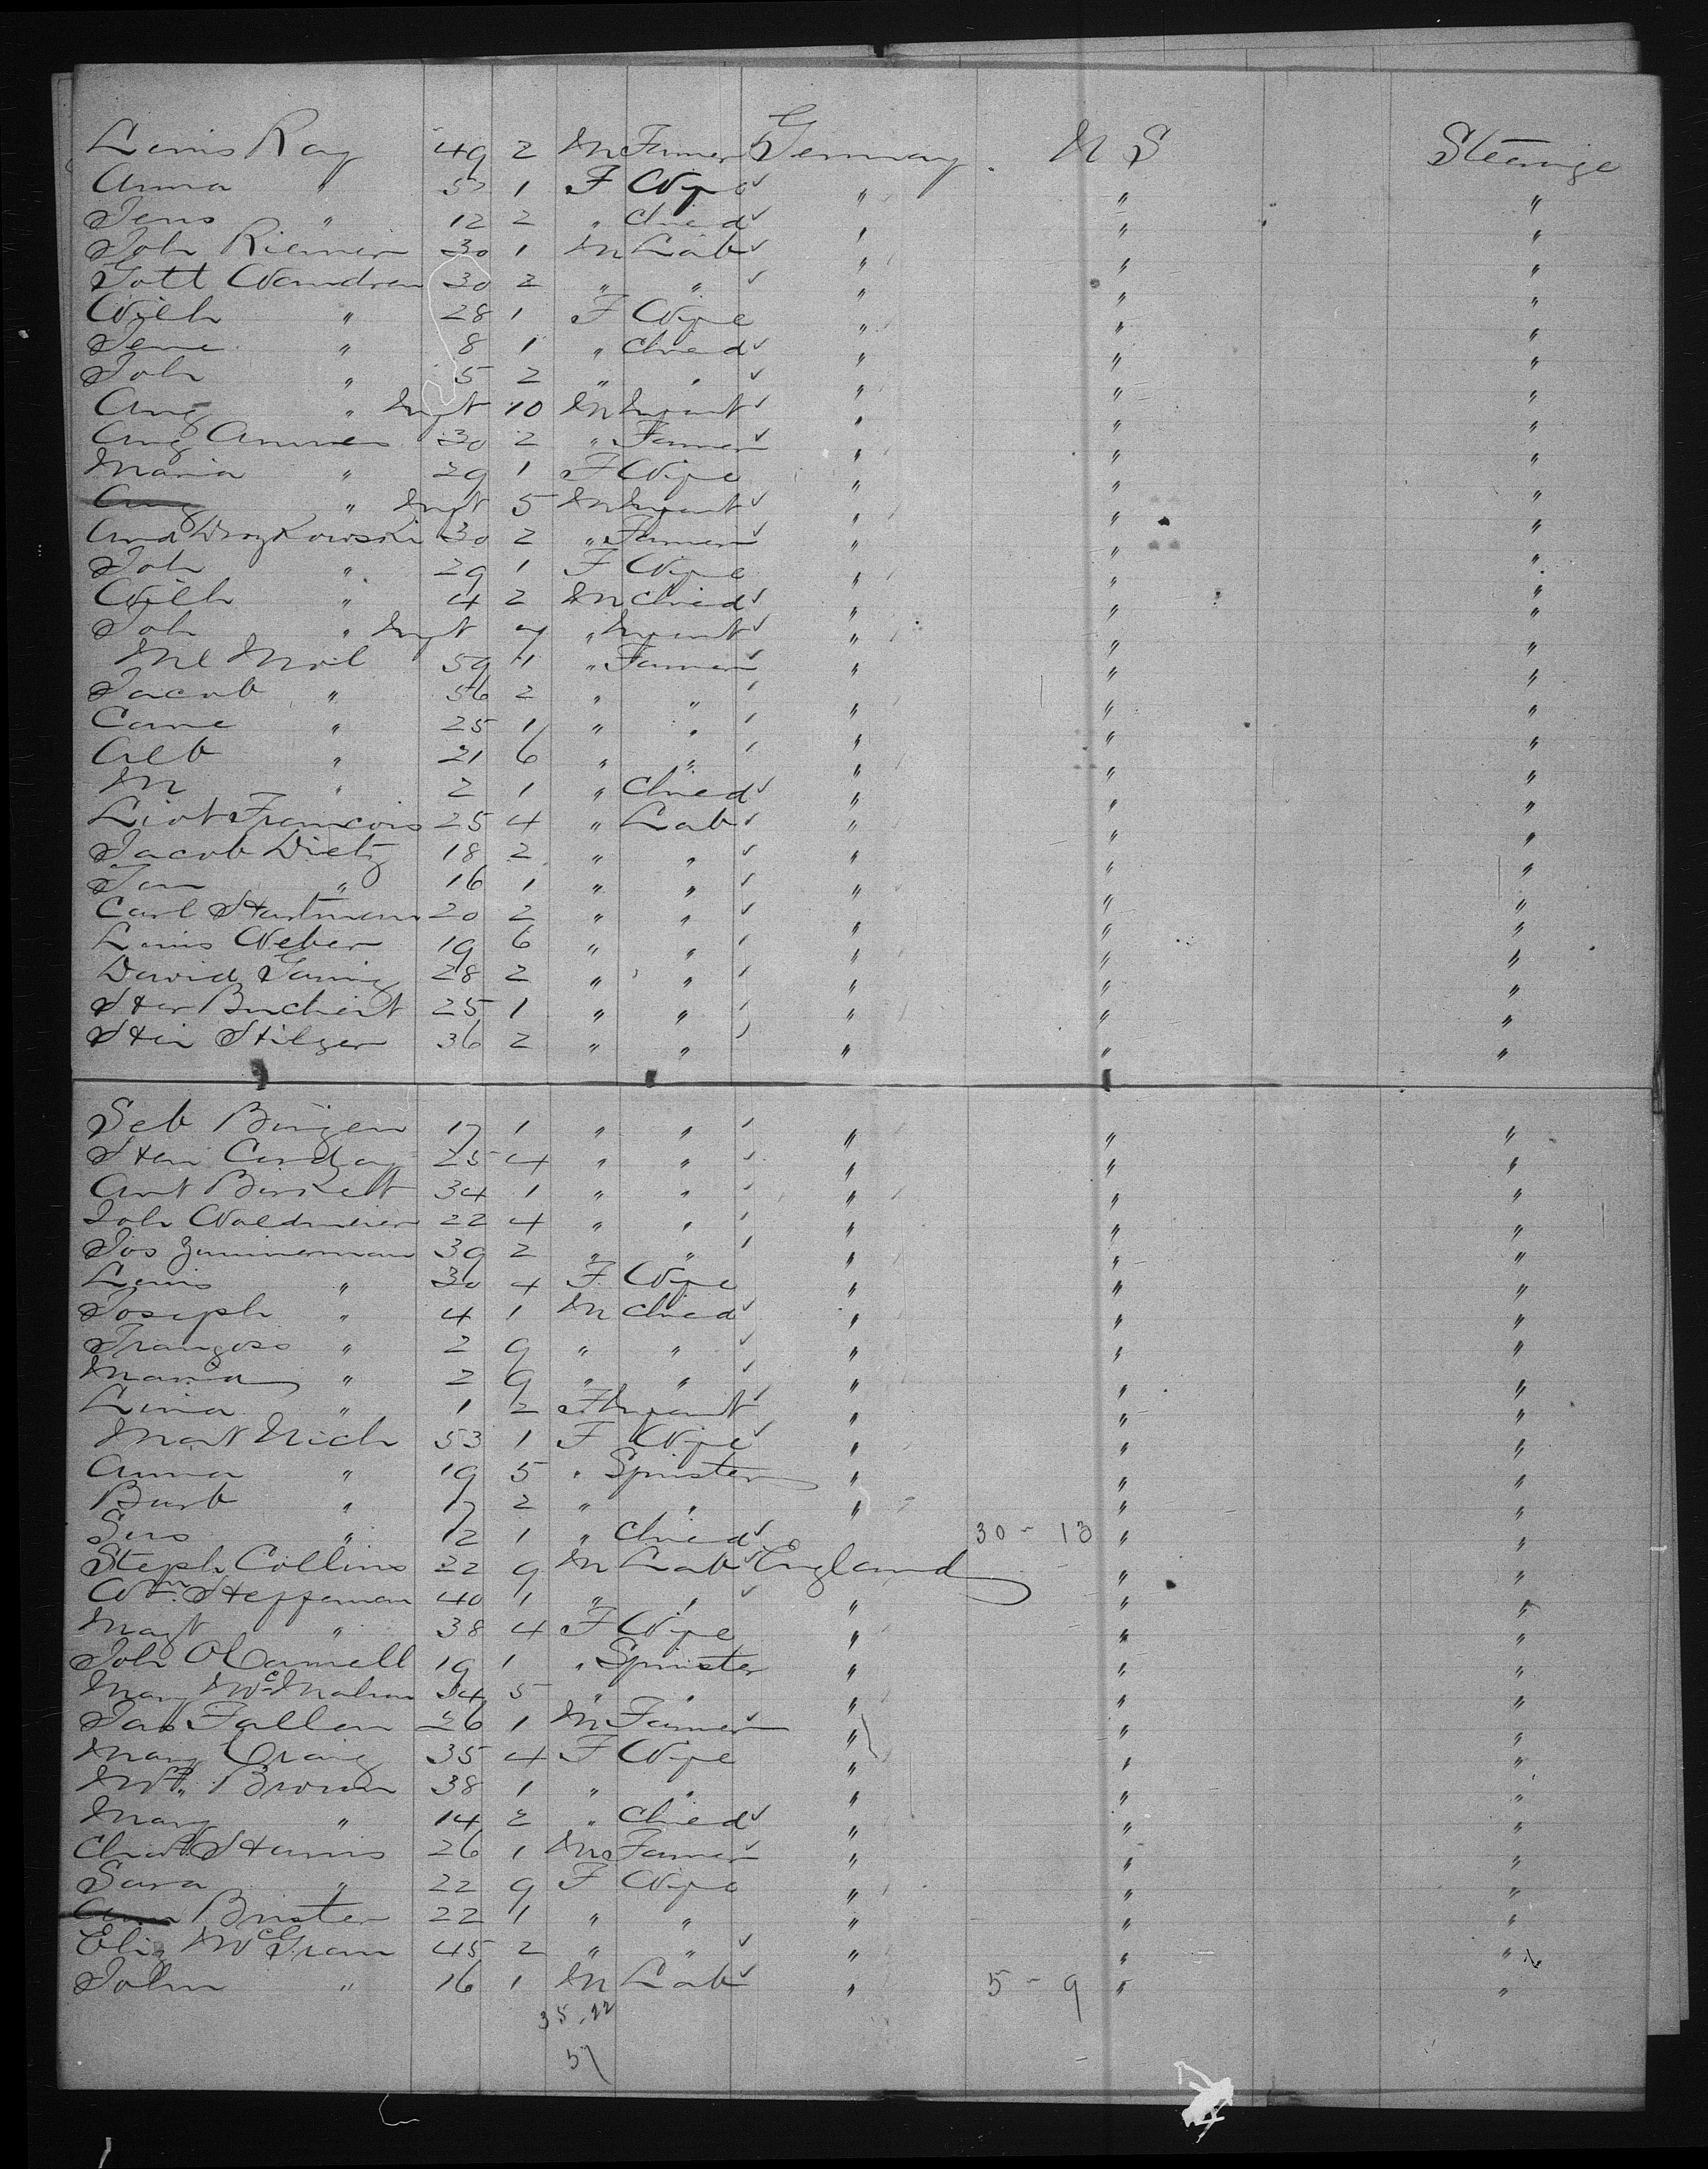 Louis Ray 49 2 M Farmer Germany U S Steerage
Anna " 57 1 F Wife " " "
Jens " 12 2 " Child " " "
Joh Riemer 30 1 M Lab " " "
Gott Wandrer 30 2 " " " " "
Wilh " 28 1 F Wife " " "
" 8 1 " Child " " "
Joh " 5 2 " " " " "
Aug " Inft 10 M Infant " " "
Aug Ammes 30 2 " Farmer " " "
Maria " 29 1 F Wife " " "
Aug " Inft 5 M Infant " " "
And 30 2 " Farmer " " "
Joh " 29 1 F Wife " " "
Wilh " 4 2 M Child " " "
Joh " Inft " Infant " " "
59 1 " Farmer " " "
Jacob " 56 2 " " " " "
" 25 1 " " " " "
Alb " 21 6 " " " " "
M " 2 1 " Child " " "
Francois 25 4 " Lab " " "
Jacob Dietz 18 2 " " " " "
Jan " 16 1 " " " " "
Carl Hartmann 20 2 " " " " "
Louis Weber 19 6 " " " " "
David 28 2 " " " " "
Her Buchert 25 1 " " " " "
Hei Hilger 36 2 " " " " "
Seb Bingen 17 1 " " " " "
25 4 " " " " "
Ant Birkelt 34 1 " " " " "
Joh Waldmeier 22 4 " " " " "
Jos Zimmerman 39 2 " " " " "
Louis " 30 4 F Wife " " "
Joseph " 4 1 M Child " " "
" 2 9 " " " " "
Maria " 2 9 " " " " "
Lina " 1 2 F Infant " " "
Mart Nich 53 1 F Wife " " "
Anna " 19 5 " Spinster " " "
Barb " 17 2 " " " " "
" 12 1 " Child 30 - 13 " "
Steph Collins 22 9 M Lab England " "
Wm Heffernan 40 1 " " " " "
Magt " 38 4 F Wife " " "
Joh OConnell 19 1 " Spinster " " "
Mary McMahon 34 5 " " " " "
Jas Fallen 26 1 M Farmer " " "
Mary Craig 35 4 F Wife " " "
Brown 38 1 " " " " "
Mary " 14 2 " Child " " "
Harris 26 1 M Farmer " " "
Sara " 22 9 F Wife " " "
Ann Brister 22 1 " " " " "
Eliz 45 2 " " " " "
John " 16 1 M Lab " 5 - 9 " "
35.22
57